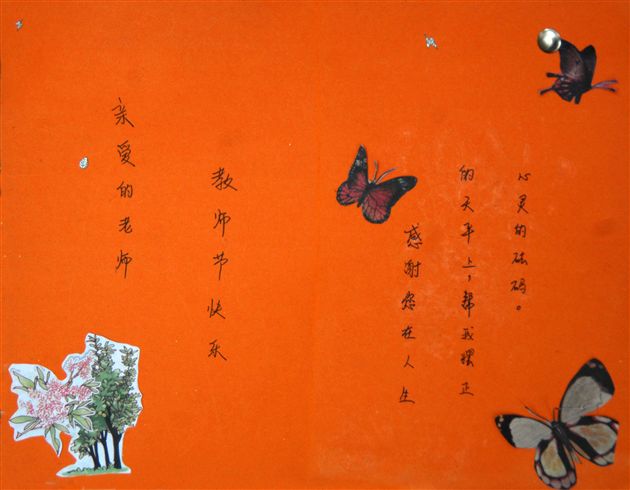 亲爱的老师
教师节快乐
感谢您在人生
的天平上，帮我摆正
心灵的砝码。